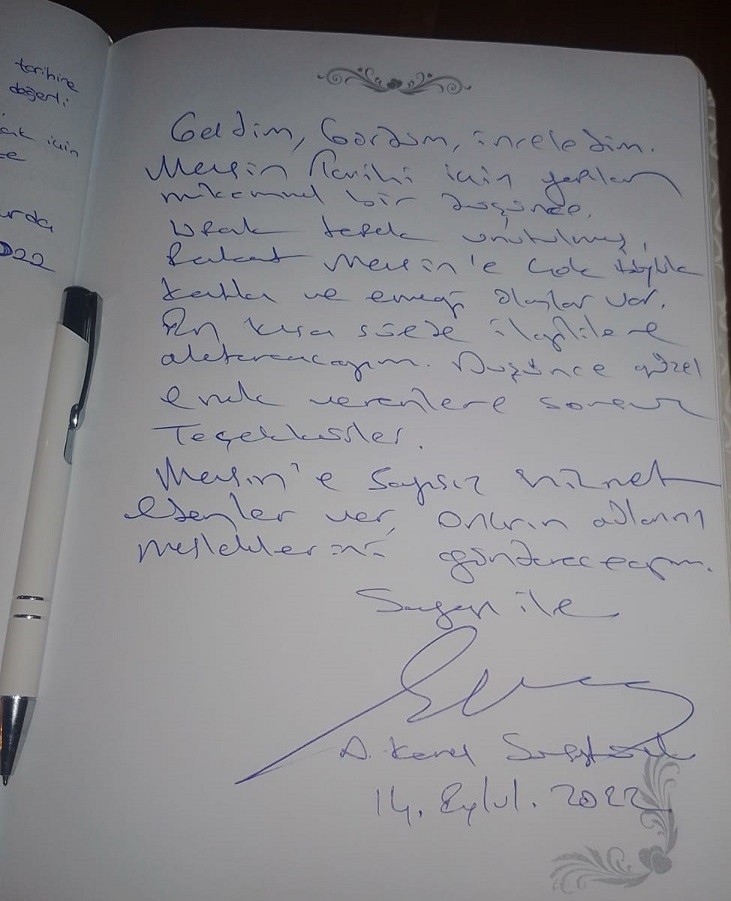 tarihine
değerli
için
2022
Geldim, Gördüm, inceledim.
Mersin Tarihi için yapılan
mükemmel bir düşünce.
Ufak tefek unutulmuş,
Fakat Mersin'e çok büyük
katkı ve emeği olanlar var.
En kısa sürede ilgililere
aktaracağım. Düşünce güzel
emek verenlere sonsuz
Teşekkürler.
Mersin'e sayısız hizmet
edenler var, onların adlarını
mesleklerini göndereceğim.
Saygı ile
A. Kerel
14. Eylül. 2022